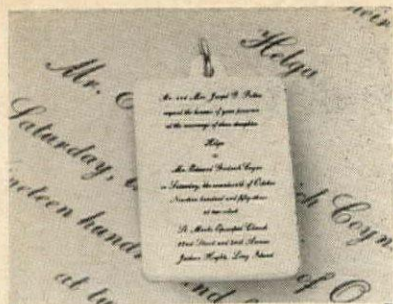 Helga
Mr.
Saturday,
Mr. and Mrs. Joseph
request the honour of your presence
at the marriage of their daughter
Helga
to
Mr. Edward Frederick Coyne
on Saturday, the seventeenth of October
Nineteen hundred and fifty-three
at two o'clock
St. Mark's Episcopal Church
82nd Street and 34th Avenue
Jackson Heights, Long Island
of O